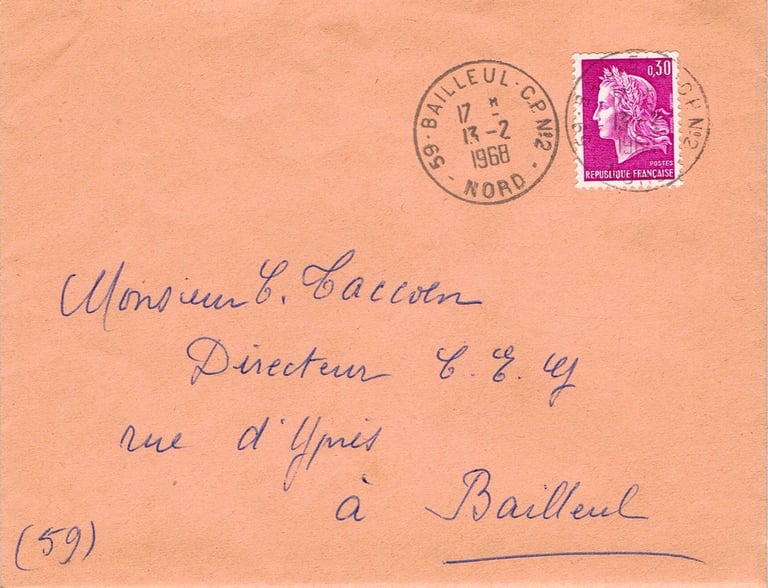 59 - BAILLEUL - C.P. Nº2 - NORD -
17 H -
13 -2
1968
0,30
POSTES
REPUBLIQUE FRANÇAISE
Monsieur C. Taccoen
Directeur C. E. G
rue d'Ypres
à Bailleul
(59)